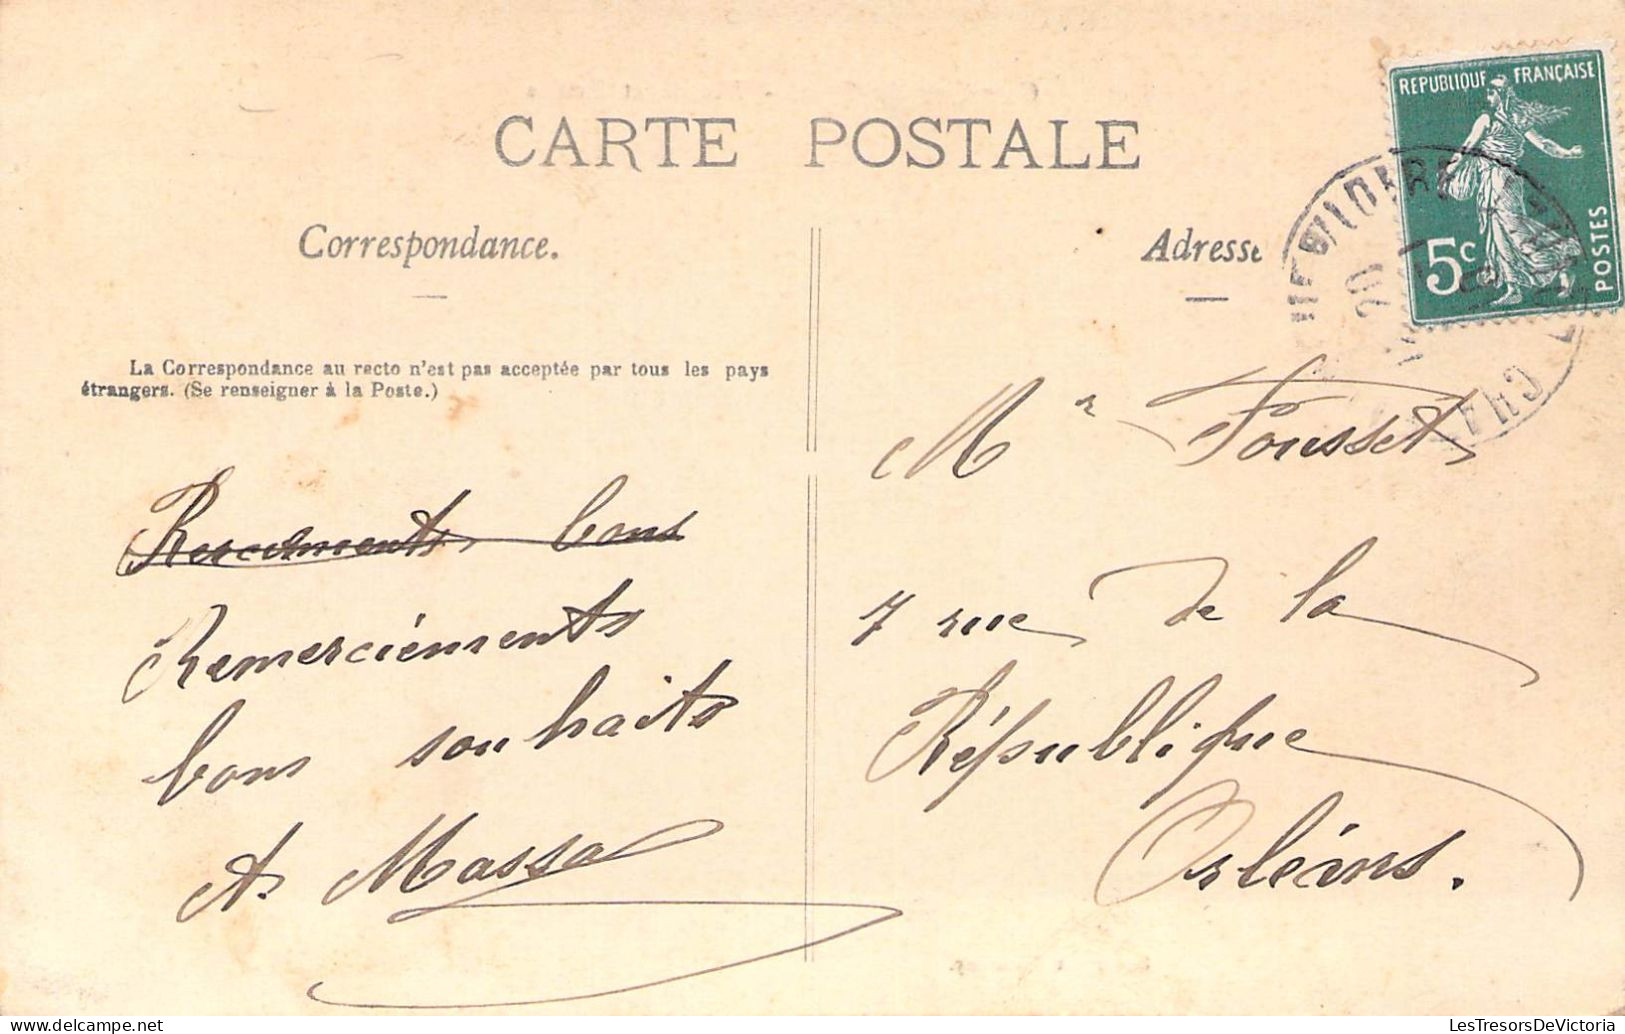 CARTE POSTALE
Correspondance.
La Correspondance au recto n'est pas acceptée par tous les pays
étrangers. (Se renseigner à la Poste.)
bons
Remerciements
bons souhaits
A. Massa
Adresse
REPUBLIQUE FRANÇAISE
5c
POSTES
Mr Fousset
7 rue de la
République
Orléans.
LesTresorsDeVictoria